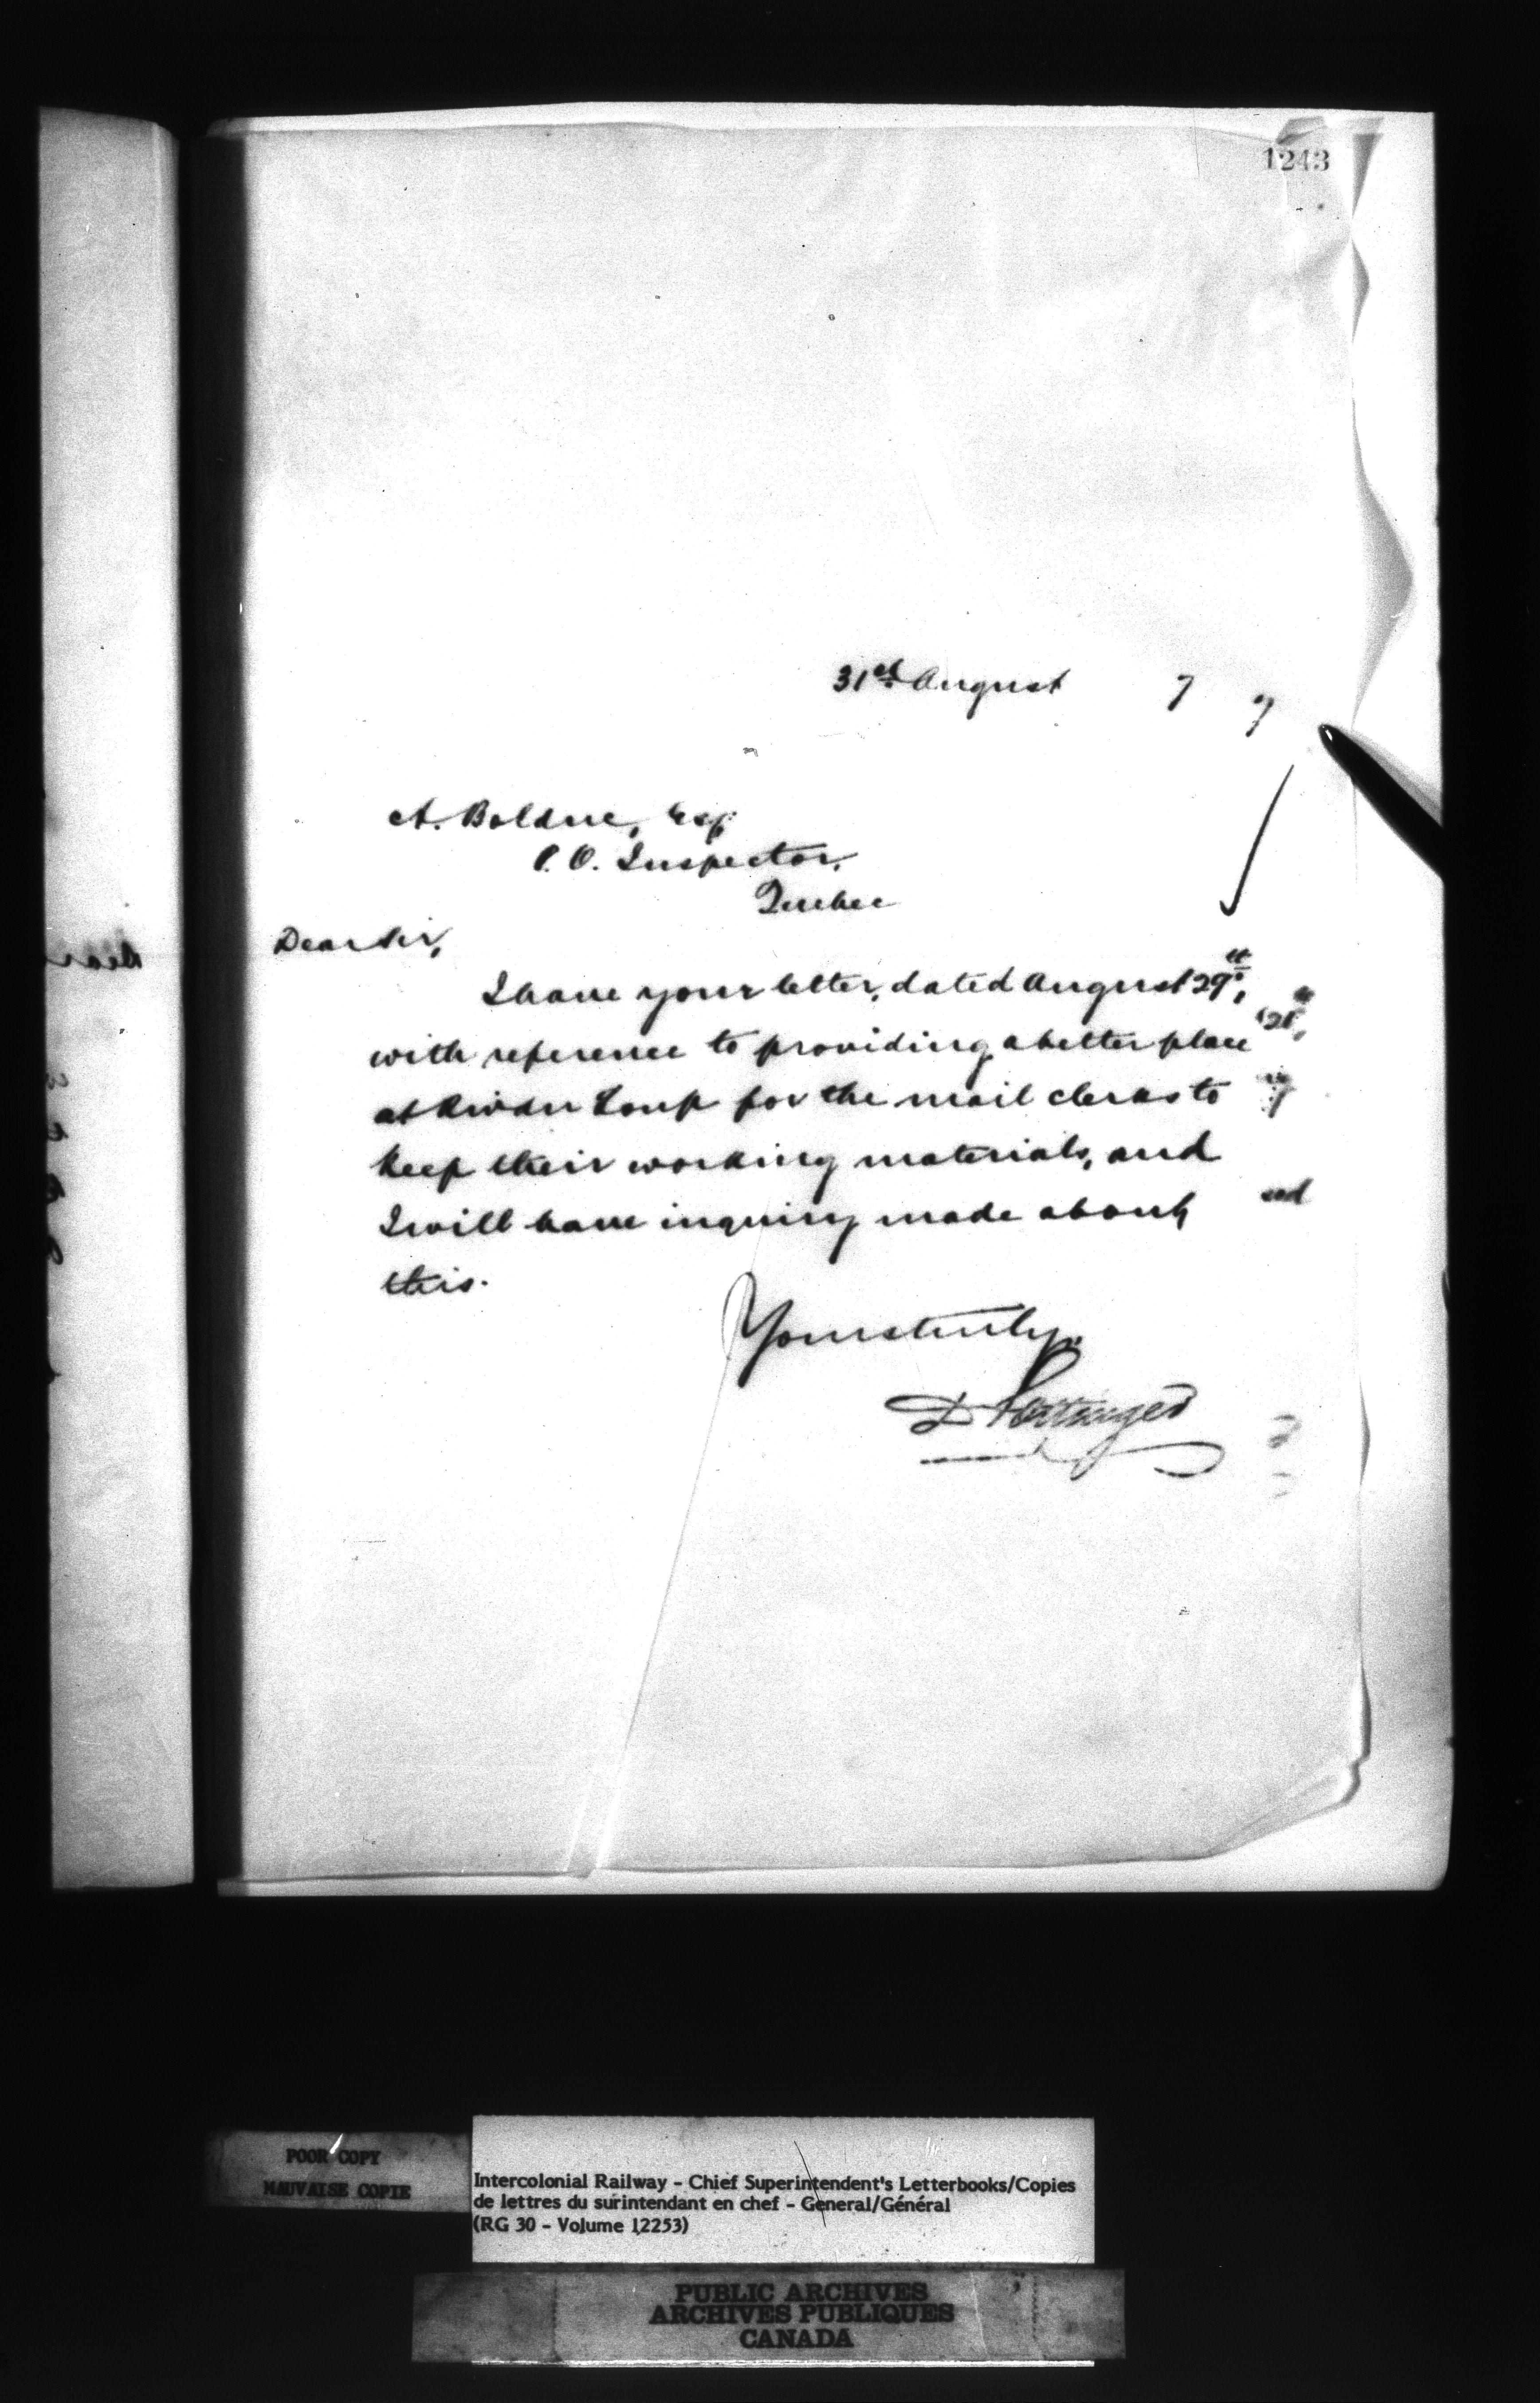 1243
31st August 7 9
A. Bolduc, Esq.
P. O. Inspector,
Quebec
Dear Sir,
I have your letter, dated August 29th,
with reference to providing a better place
at Riv du Loup for the mail clerks to
keep their working materials, and
I will have inquiry made about
this.
Yours truly,
D Pottinger
POOR COPY
MAUVAISE COPIE
Intercolonial Railway - Chief Superintendent's Letterbooks/Copies
de lettres du surintendant en chef - General/Général
(RG 30 - Volume 12253)
PUBLIC ARCHIVES
ARCHIVES PUBLIQUES
CANADA